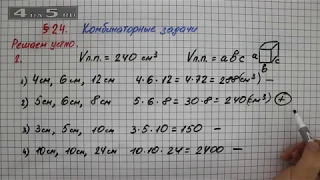 4 АЛ 5 RU
§24. Комбинаторные задачи
Решаем устно.
2. Vп.п. = 240 см³ Vп.п. = a b c
a
b
c
1) 4см, 6см, 12см 4·6·12 = 4·72 = 288(см³) –
2) 5см, 6см, 8см 5·6·8 = 30·8 = 240(см³) +
3) 3см, 5см, 10см 3·5·10 = 150 –
4) 10см, 10см, 24см 10·10·24 = 2400 –